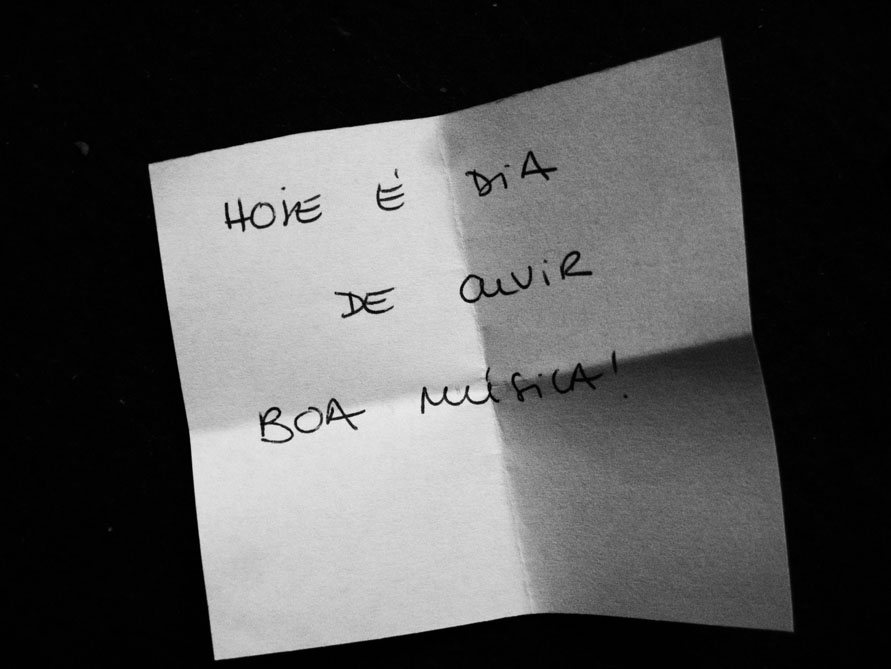 HOJE É DIA
DE OUVIR
BOA MÚSICA!